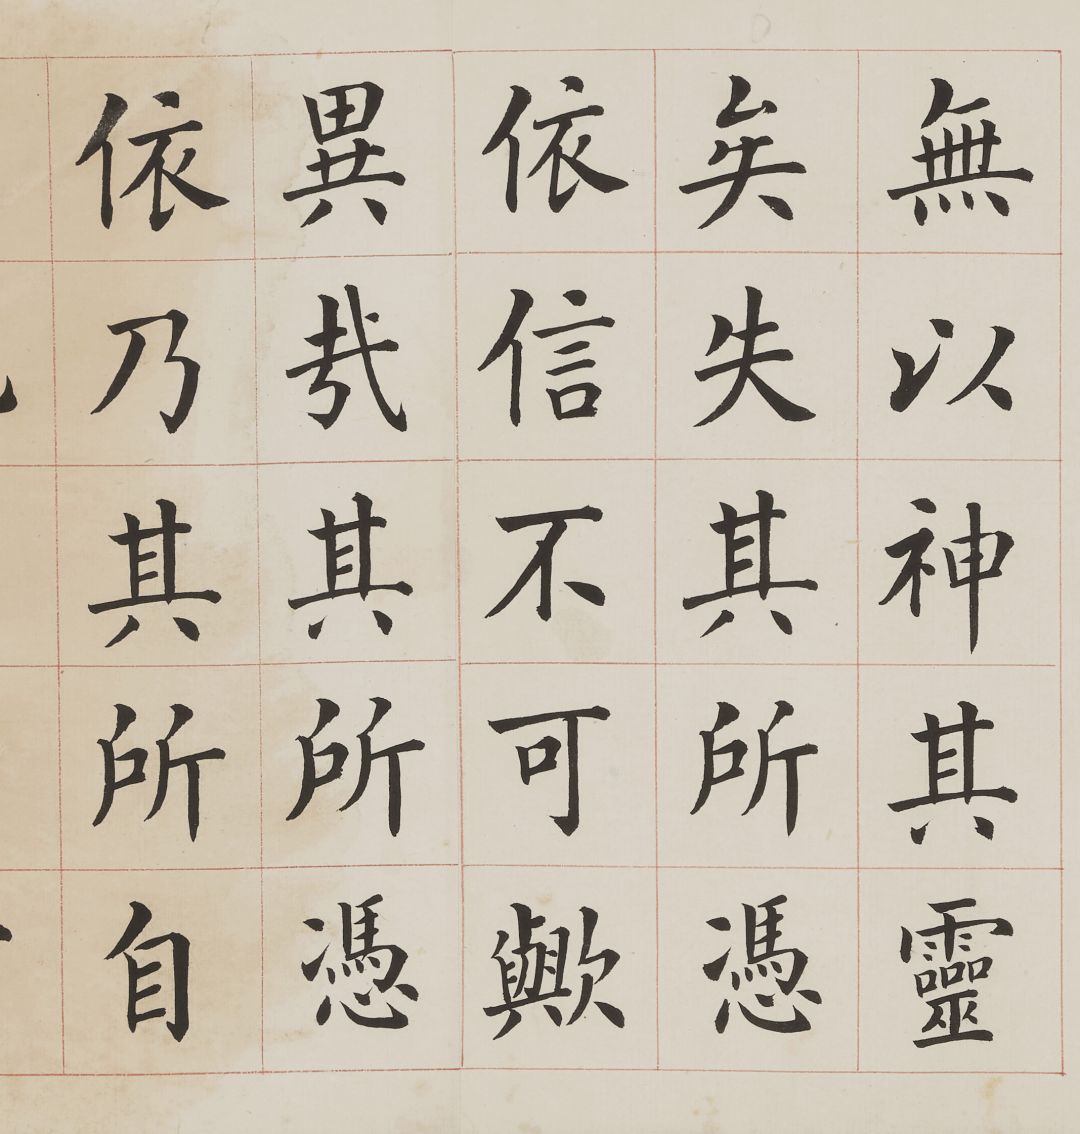 無以神其靈
矣失其所憑
依信不可歟
異哉其所憑
依乃其所自